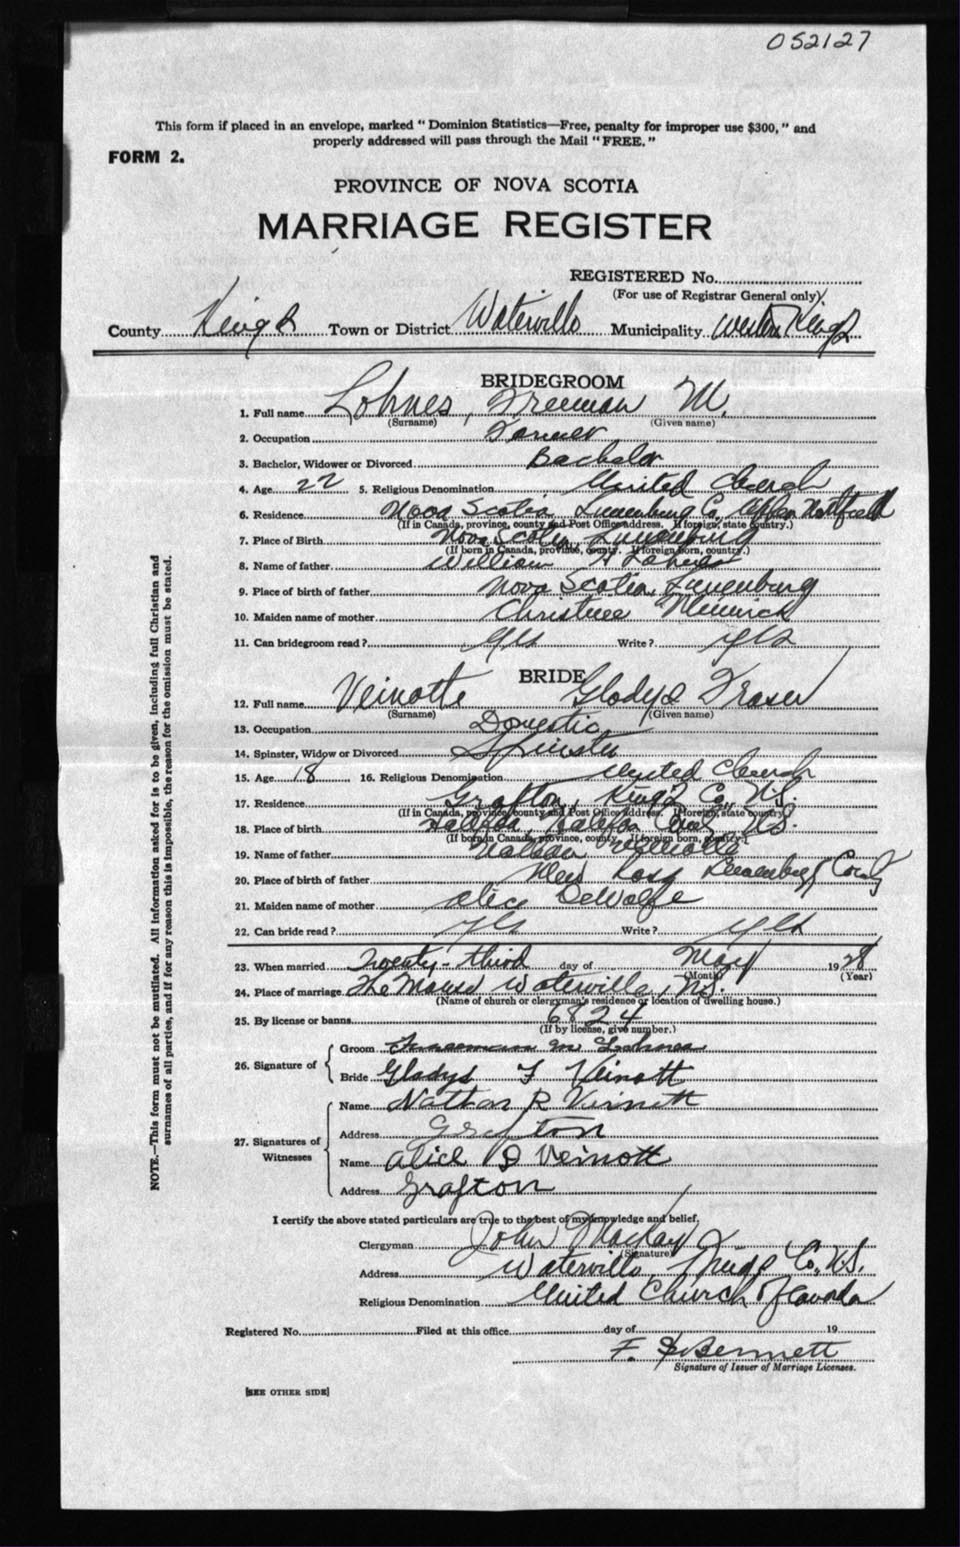 052127
This form if placed in an envelope, marked "Dominion Statistics—Free, penalty for improper use $300," and
properly addressed will pass through the Mail "FREE."
FORM 2.
PROVINCE OF NOVA SCOTIA
MARRIAGE REGISTER
REGISTERED No.
(For use of Registrar General only).
County Kings Town or District Waterville Municipality Western Kings
BRIDEGROOM
1. Full name Lohnes, Freeman M.
(Surname) (Given name)
2. Occupation Farmer
3. Bachelor, Widower or Divorced Bachelor
4. Age 22 5. Religious Denomination United Church
6. Residence Nova Scotia Lunenburg Co, Upper Northfield
(If in Canada, province, county and Post Office address. If foreign, state country.)
7. Place of Birth Nova Scotia, Lunenburg
(If born in Canada, province, county. If foreign born, country.)
8. Name of father William A Lohnes
9. Place of birth of father Nova Scotia, Lunenburg
10. Maiden name of mother Christine
11. Can bridegroom read? yes Write? yes
BRIDE
12. Full name Veinotte Gladys Fraser
(Surname) (Given name)
13. Occupation Domestic
14. Spinster, Widow or Divorced Spinster
15. Age 18 16. Religious Denomination United Church
17. Residence Grafton, King's Co, N.S.
(If in Canada, province, county and Post Office address. If foreign, state country.)
18. Place of birth Halifax, Halifax N.S.
(If born in Canada, province, county. If foreign born, country.)
19. Name of father Nathan Veinotte
20. Place of birth of father New Ross Lunenburg County
21. Maiden name of mother Alice DeWolfe
22. Can bride read? yes Write? yes
23. When married Twenty-third day of May 1928
(Month) (Year)
24. Place of marriage The Manse Waterville, N.S.
(Name of church or clergyman's residence or location of dwelling house.)
25. By license or banns 6824
(If by license, give number.)
26. Signature of
Groom Freeman M Lohnes
Bride Gladys F Veinott
27. Signatures of Witnesses
Name Nathan R Virnott
Address Grafton
Name Alice D Veinott
Address Grafton
I certify the above stated particulars are true to the best of my knowledge and belief.
Clergyman John Mackay
(Signature)
Address Waterville Kings Co., N.S.
Religious Denomination United Church of Canada
Registered No. Filed at this office day of 19
F. Bennett
Signature of Issuer of Marriage Licenses.
[SEE OTHER SIDE]
NOTE.—This form must not be mutilated. All information asked for is to be given, including full Christian and
surnames of all parties, and if for any reason this is impossible, the reason for the omission must be stated.